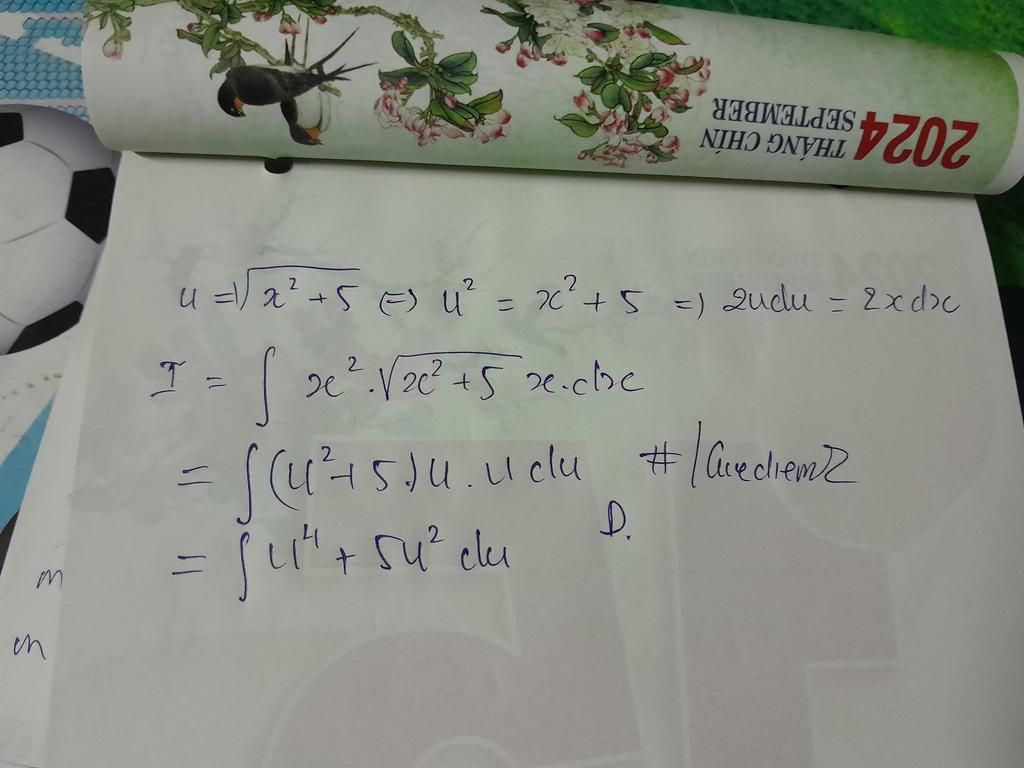 2024 THÁNG CHÍN SEPTEMBER
u = √(x² + 5) <=> u² = x² + 5 => 2udu = 2xdx
I = ∫ x².√(x² + 5) x.dx
= ∫(u² + 5).u.u du
D.
= ∫ u⁴ + 5u² du
m
m